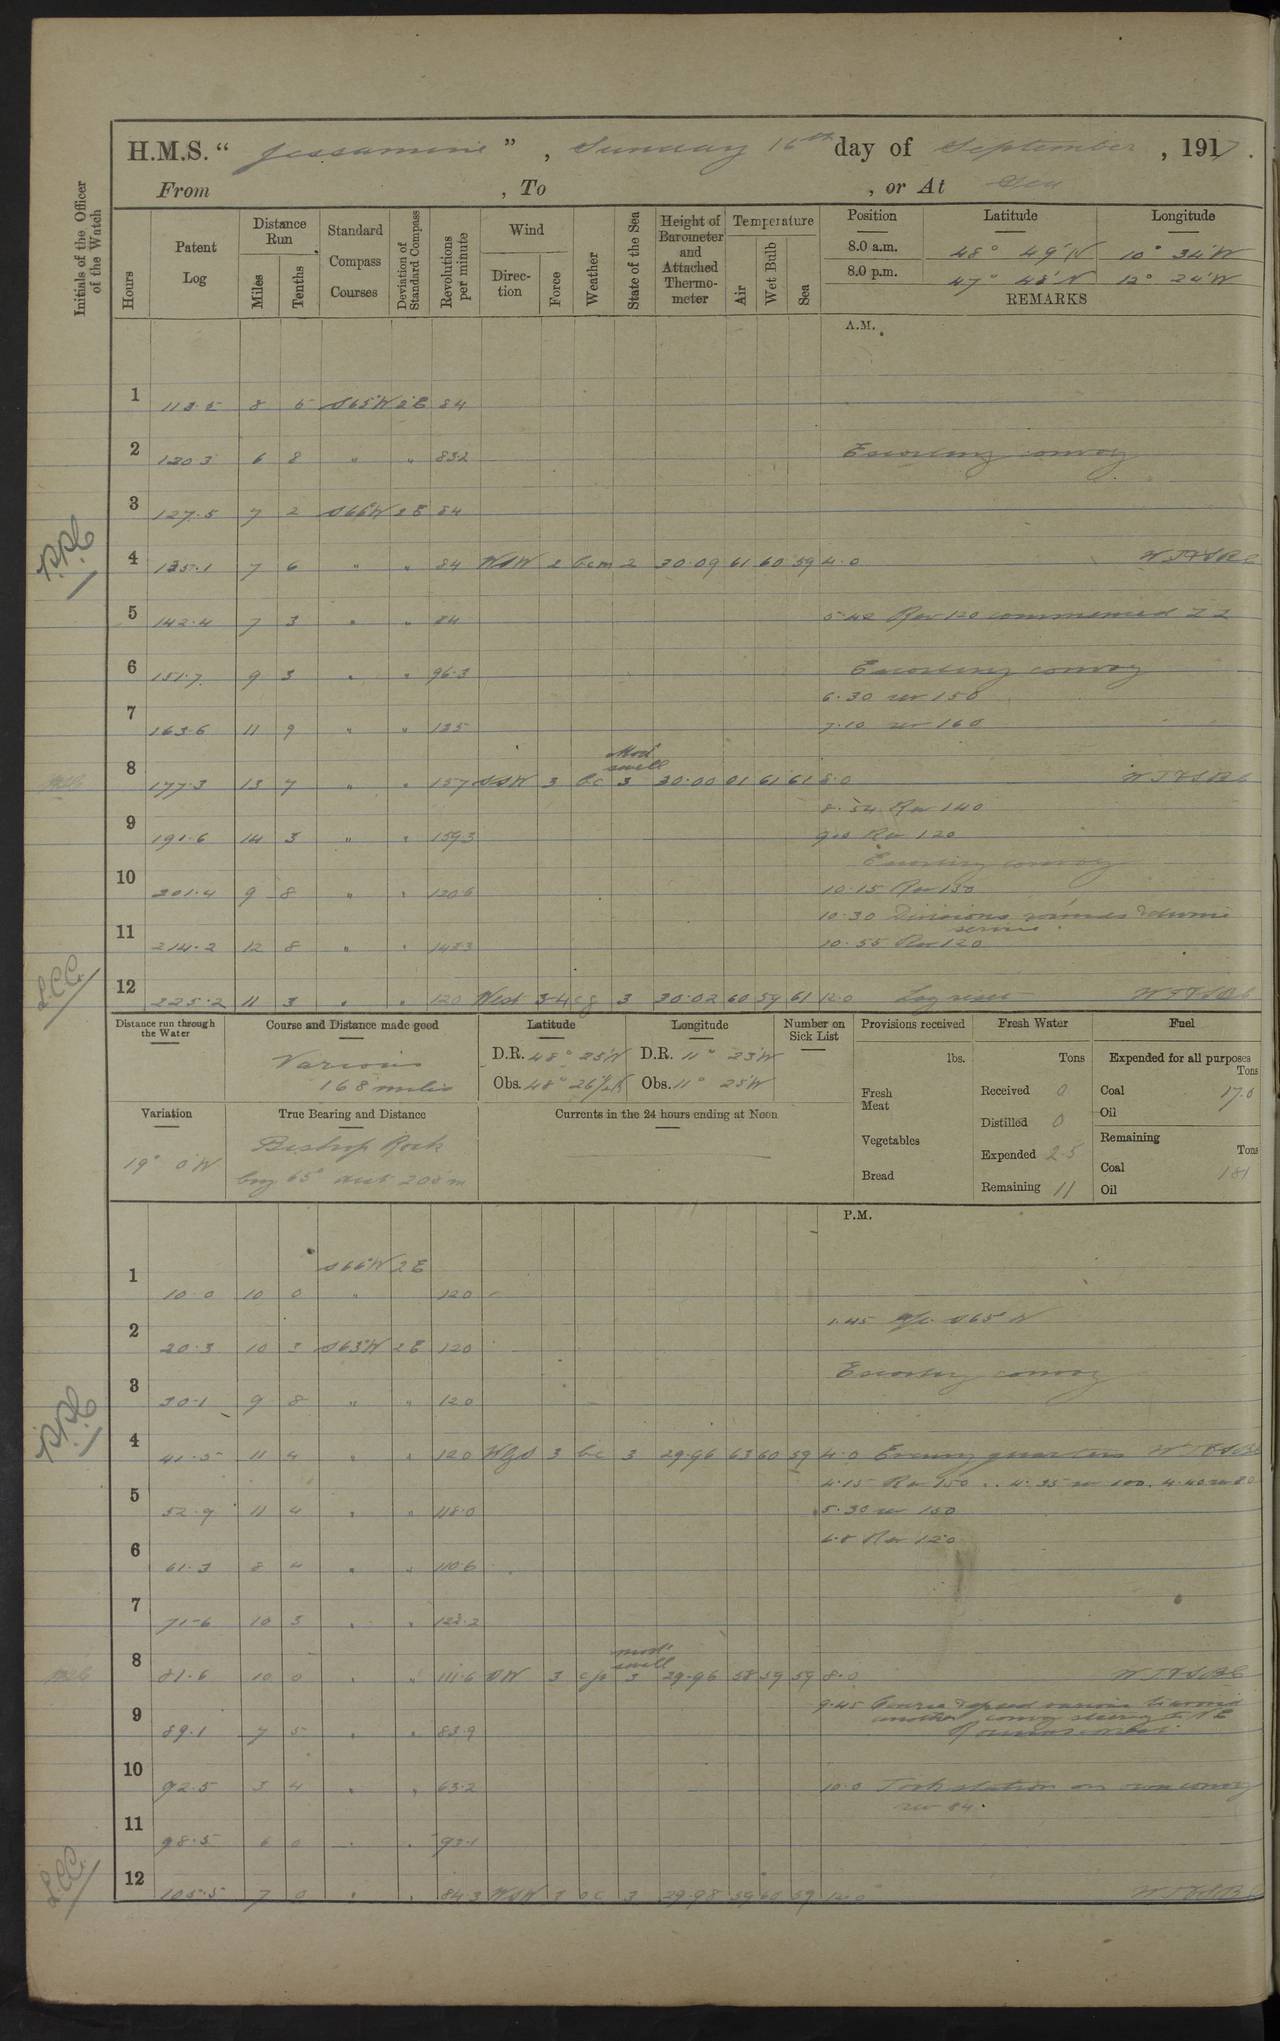 H.M.S. “ Jessamine ” , Sunday 16th day of September , 1917 .
From , To , or At Sea
Initials of the Officer of the Watch
Hours Patent Log Distance Run Miles Tenths Standard Compass Courses Deviation of Standard Compass Revolutions per minute Wind Direction Force Weather State of the Sea Height of Barometer and Attached Thermometer Temperature Air Wet Bulb Sea
Position Latitude Longitude
8.0 a.m. 48° 49'N 10° 34'W
8.0 p.m. 47° 48'N 12° 24'W
REMARKS
A.M.
1 113.5 8 5 S65W 2E 84
2 120.3 6 8 " " 83.2 Escorting convoy
3 127.5 7 2 S66W 2E 84
4 135.1 7 6 " " 84 WSW 2 bcm 2 30.09 61 60 59 4.0
5 142.4 7 3 " " 84 5.42 Rev 120 commenced ZZ
6 151.7 9 3 " " 96.3 Escorting convoy
6.30 rev 150
7 163.6 11 9 " " 125 7.10 rev 160
Mod swell
8 177.3 13 7 " " 157 SSW 3 bc 3 30.00 61 61 61 8.0
8.54 Rev 140
9 191.6 14 3 " " 159.3 Rev 120
Escorting convoy
10 201.4 9 8 " " 120.6 10.15 Rev 150
10.30 Divisions rounds & divine service.
11 214.2 12 8 " " 143.3 10.55 Rev 120
12 225.2 11 3 " " 120 West 3-4 cg 3 30.02 60 59 61 12.0 Log reset
Distance run through the Water
Course and Distance made good
Various
168 miles
Latitude Longitude
D.R. 48° 25'N D.R. 11° 23'W
Obs. 48° 26½'N Obs. 11° 25'W
Number on Sick List
Provisions received
lbs.
Fresh Meat
Vegetables
Bread
Fresh Water
Tons
Received 0
Distilled 0
Expended 2.5
Remaining 11
Fuel
Expended for all purposes
Tons
Coal 17.0
Oil
Remaining
Tons
Coal 181
Oil
Variation
19° 0'W
True Bearing and Distance
Bishop Rock
brg 65° dist 208 m
Currents in the 24 hours ending at Noon
P.M.
S66W 2E
1 10.0 10 0 " 120
1.45 a/c S65W
2 20.3 10 3 S63W 2E 120
Escorting convoy
3 30.1 9 8 " " 120
4 41.5 11 4 " " 120 WgS 3 bc 3 29.96 63 60 59 4.0 Evening quarters
4.15 Rev 150 .. 4.35 rev 100. 4.40 rev 80
5 52.9 11 4 " " 118.0 5.30 rev 150
6.8 Rev 120
6 61.3 8 4 " " 110.6
7 71.6 10 3 " " 123.2
mod swell
8 81.6 10 0 " " 111.6 SW 3 3 29.96 58 59 59 8.0
9.45 Course & speed various to avoid
another convoy steering to NE
9 89.1 7 5 " " 83.9
10 92.5 3 4 " " 63.2 10.0 Took station on own convoy
rev 84.
11 98.5 6 0 " " 93.1
12 105.5 7 0 " " 84.3 WSW 3 oc 3 29.98 59 60 59 12.0